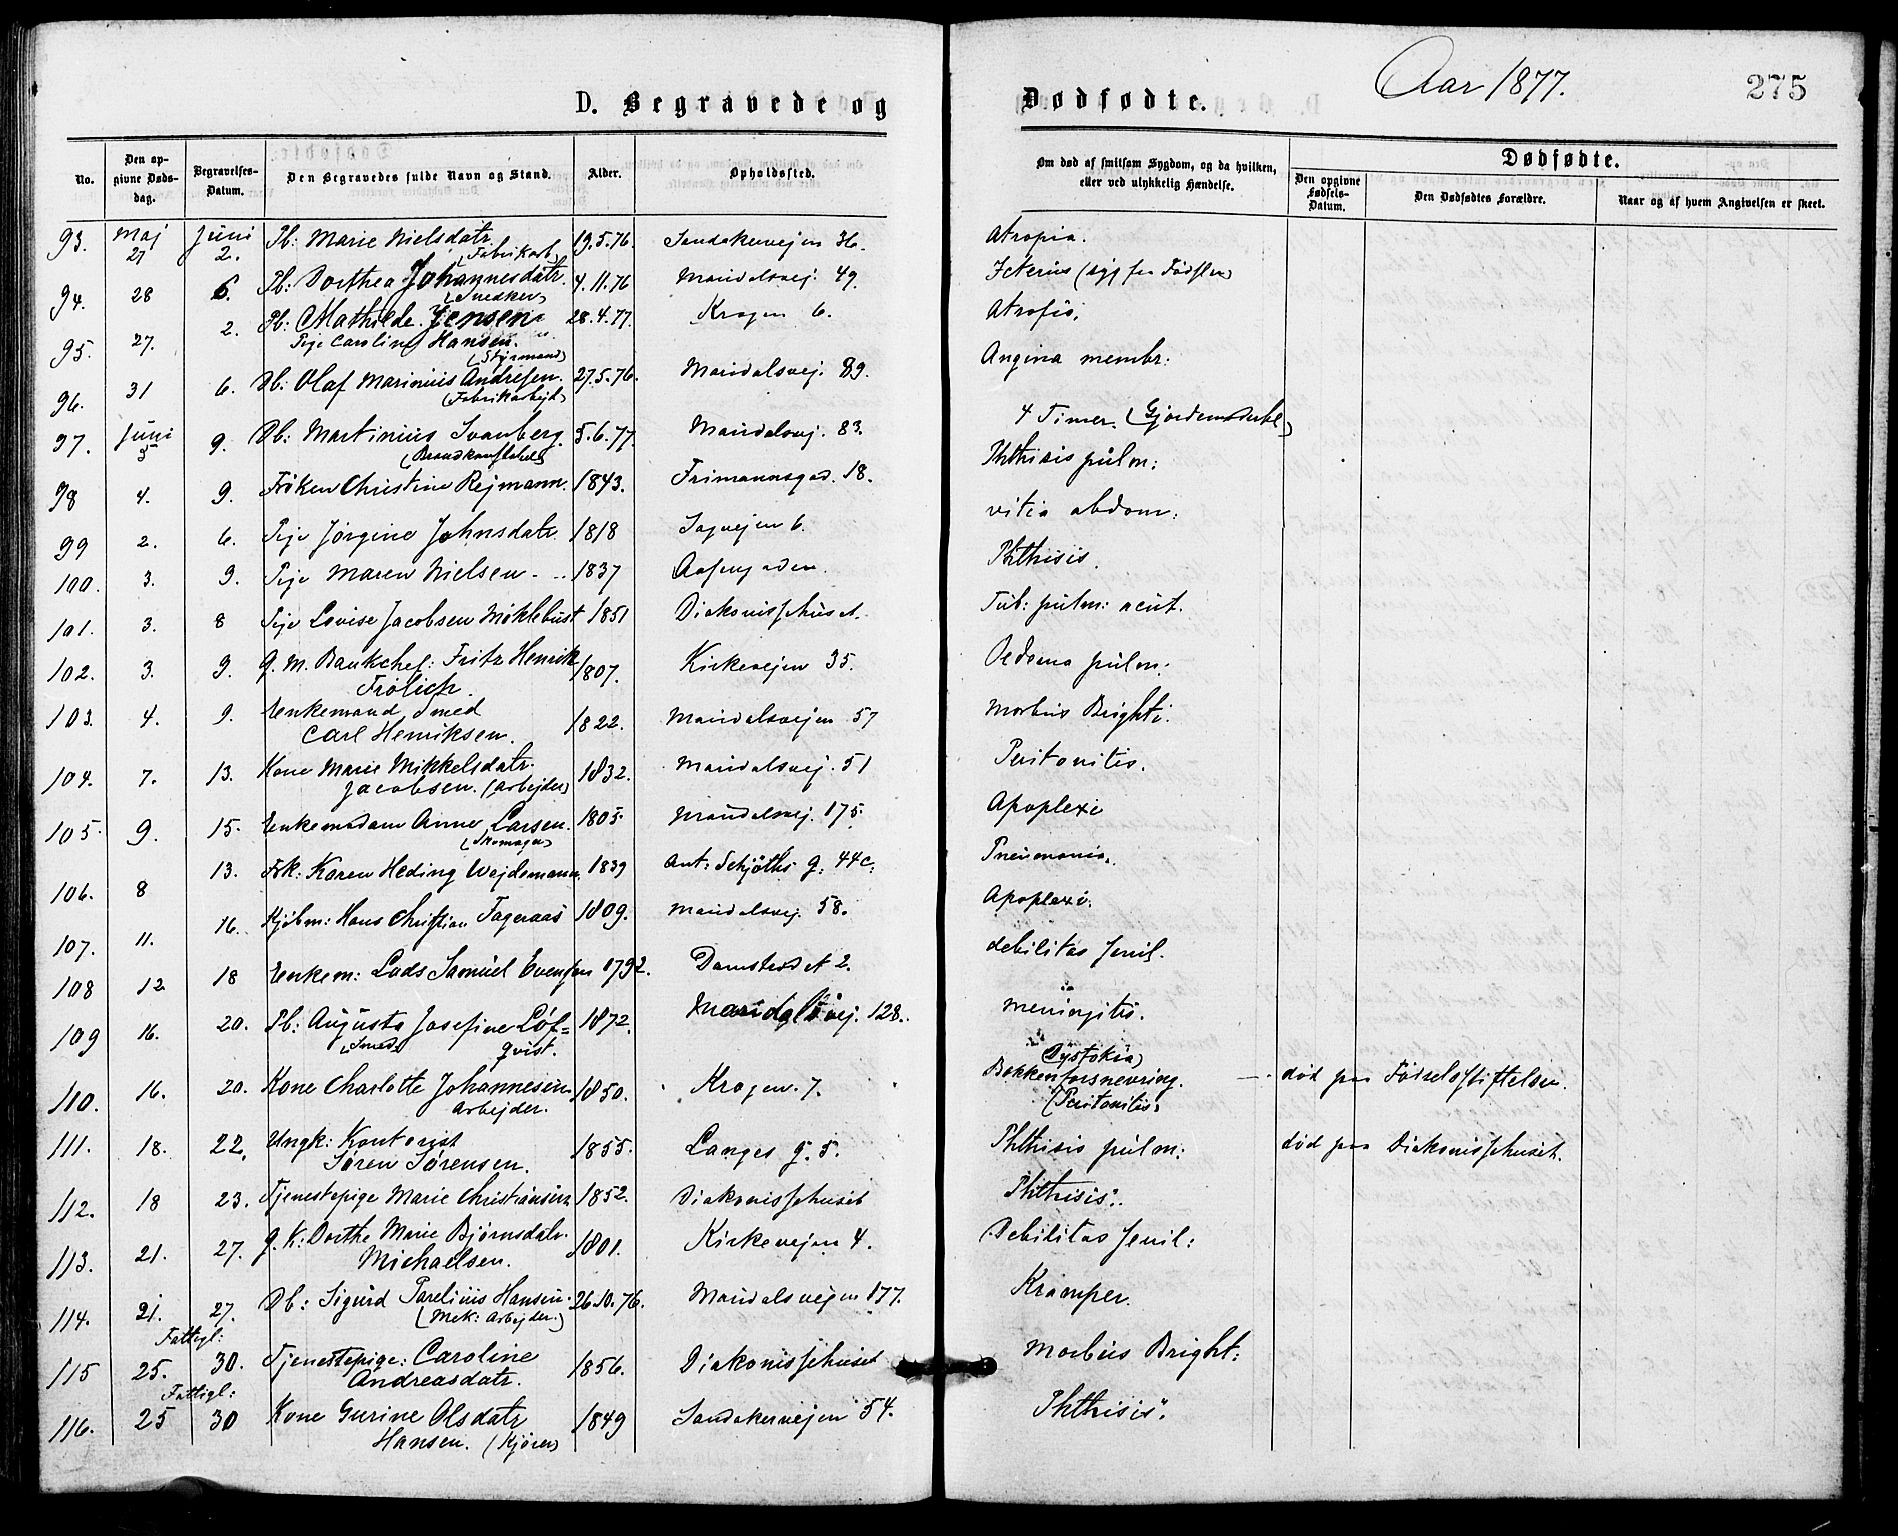 D. Begravede og
Dødfødte.
Aar 1877.
275
No.
Den opgivne Døds-dag.
Begravelses-Datum.
Den Begravedes fulde Navn og Stand.
Alder.
Opholdssted.
Om død af smitsom Sygdom, og da hvilken, eller ved ulykkelig Hændelse.
Dødfødte.
Den opgivne Fødsels-Datum.
Den Dødfødtes Forældre.
Naar og af hvem Angivelsen er skeet.
93. Maj 27 Juni 2. Pb: Marie Nielsdatr. (Fabrikarb) 19.5.76. Sandakerveien 36. Atropia.
94. 28 6. Pb: Dorthea Johannesdatr. (Snedker) 4.11.76 Maridalsvej. 49. Icterus (syg fra Fødslen)
95. 27. 2. Pb: Mathilde Jensen. 28.4.77. Krogen 6. Atrofia.
Pige Caroline Hansen.
96. 31 6. Db: Olaf Marinius Andresen. (Styrmand) 27.5.76. Maridalsvej. 89. Angina membr:
(Fabrikarbejd)
97. Juni 5 9. Db: Martinius Svanberg. 5.6.77. Maridalsvej. 83. 4 Timer. (Gjordemoderbl)
(Brandkonstabel)
98 4. 9. Frøken Christine Rejmann. 1843. Frimannsgad. 18. Phthisis pulm:
99 2. 6. Pige Jørgine Johnsdatr. 1818 Sagvejen 6. vitia abdom:
100. 3. 9. Pige Maren Nielsen. 1837 Aasengaden. Phthisis.
101. 3. 8 Pige Lovise Jacobsen Møklebust 1851 Diakonissehuset. Tub: pulm: acut.
102. 3. 9. G. M. Bankchef: Fritz Henrik 1807. Kirkevejen 35. Oedema pulm:
Frølich.
103. 4. 9. Enkemand Smed 1822. Maridalsvejen 57 Morbus Brighti.
Carl Henriksen.
104. 7. 13. Kone Marie Mikkelsdatr. 1832. Maridalsvej. 51 Peritonitis.
Jacobsen. (Arbejder)
105. 9. 15. Enkemadam Anne Larsen. 1805. Maridalsvej. 175. Apoplexi
(Skomager)
106. 8 13. Frk: Karen Heding Wejdemann. 1839 Ant: Schjøths g. 44c. Pneumonia.
107. 11. 16. Kjøbm: Hans Christian Fageraas 1809. Maridalsvej. 58. Apoplexi.
108 12 18 Enkem: Lads Samuel Evensen 1792. Damstredet 2. debilitas senil.
109 16. 20. Pb: Augusta Josefine Løf= 1872. Maridalsvej. 128. Meningitis.
(Smed) qvist.
110. 16. 20. Kone Charlotte Johannesen 1850. Krogen. 7. Bækkenforsnevring. død paa Fødselsstiftelsen.
Arbejder. (Dystokia) (Peritonitis)
111. 18. 22. Ungk: Kontorist 1855. Langes g. 5. Phthisis pulm: død paa Diakonissehuset.
Søren Sørensen.
112. 18 23. Tjenestepige Marie Christiansen 1852. Diakonissehuset Phthisis.
113. 21. 27. G. K: Dorthe Marie Bjørnsdatr. 1801. Kirkevejen 4. Debilitas senil:
Michaelsen.
114. 21. 27. Db: Sigurd Parelius Hansen. 26.10.76. Maridalsvejen 177. Kramper.
(Mek: Arbejder.)
Fattigl:
115 25. 30. Tjenestepige: Caroline 1856. Diakonissehuset Morbus Bright:
Andreasdatr.
Fattigl:
116. 25 30 Kone Gurine Olsdatr 1849 Sandakerveien 54. Phthisis.
Hansen. (Kjører)